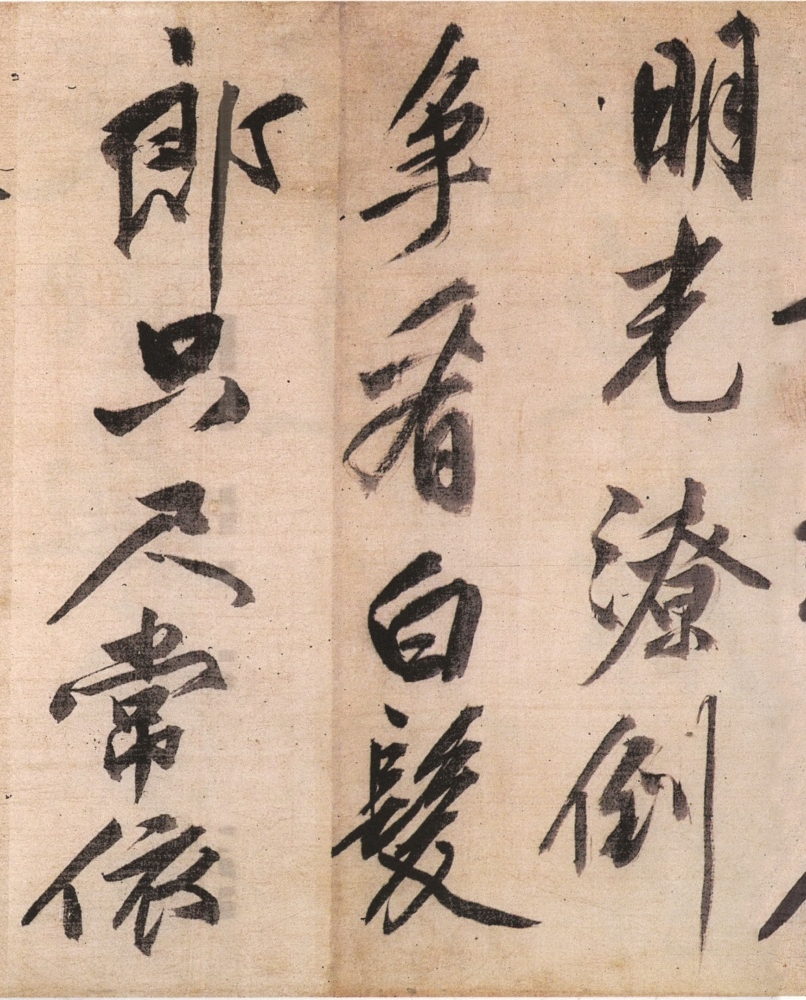 明光潦倒
争看白髮
郎只尺常依